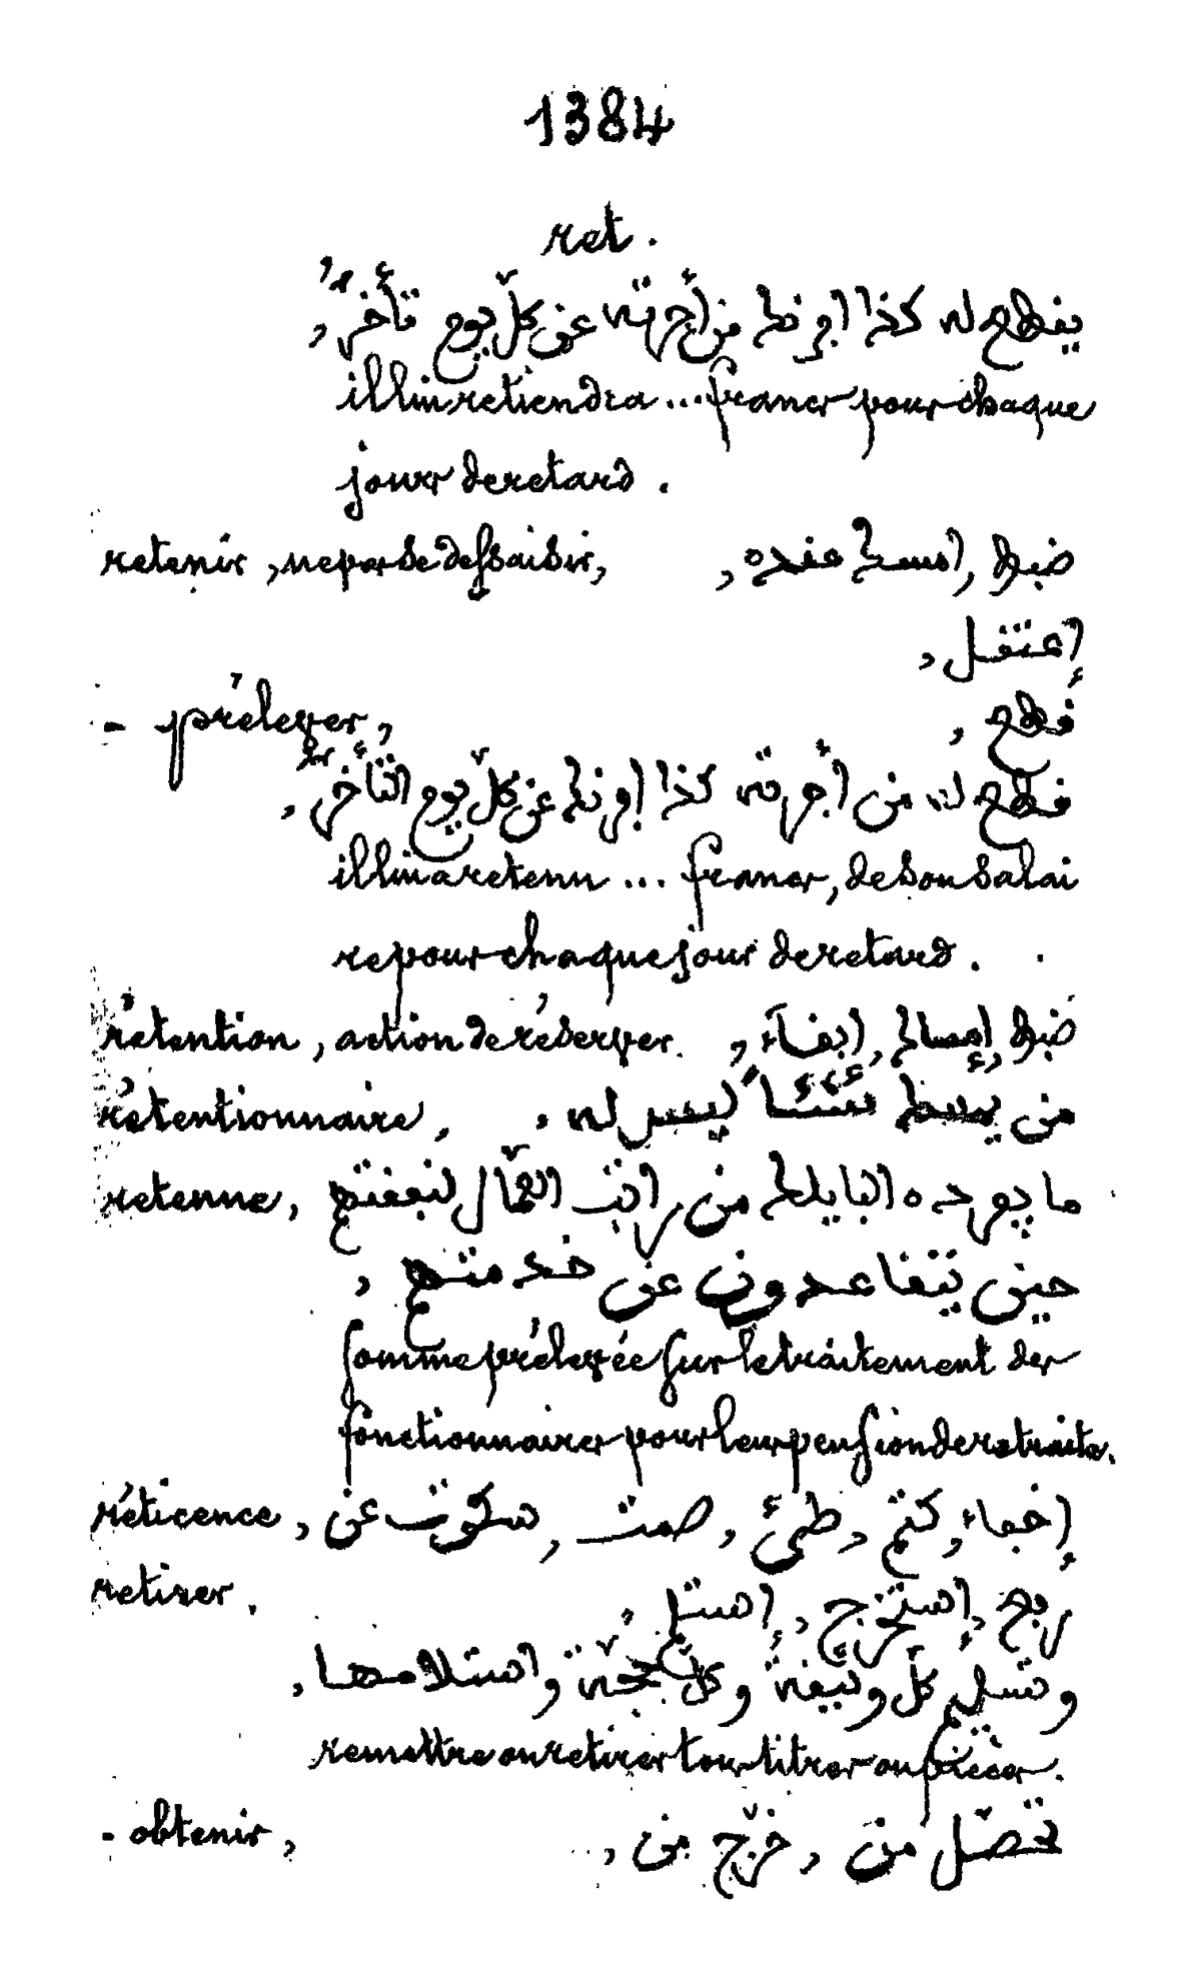 1384
ret.
يفطع له كذا افرنك من أجرته عن كلّ يوم تأخّر,
il lui retiendra ... francs pour chaque
jour de retard.
retenir, ne pas se dessaisir, ضبط, امسك عنده,
إعتفل,
- prélever, فطع,
فطع له من أجرته كذا إفرنك عن كلّ يوم التأخّر,
il lui a retenu ... francs, de son salai
re pour chaque jour de retard.
rétention, action de réserver. ضبط, إمساك, إبفاء,
rétentionnaire, من يمسك شئنا ليس له,
retenue, ما يوخده البايلك من راتب العمّال لنبفتهم
حين يتفاعدون عن خدمتهم,
somme prélevée sur le traitement des
fonctionnaires pour leur pension de retraite.
réticence, إخباء, كتم, طئ, صمت, سكوت عن
retirer. ربع, إستخرج, إستل,
وتسليم كلّ وثيفة وكلّ حجّة واستلامها,
remettre ou retirer tous titres ou pièces.
- obtenir, تحصّل من, خرّج من,